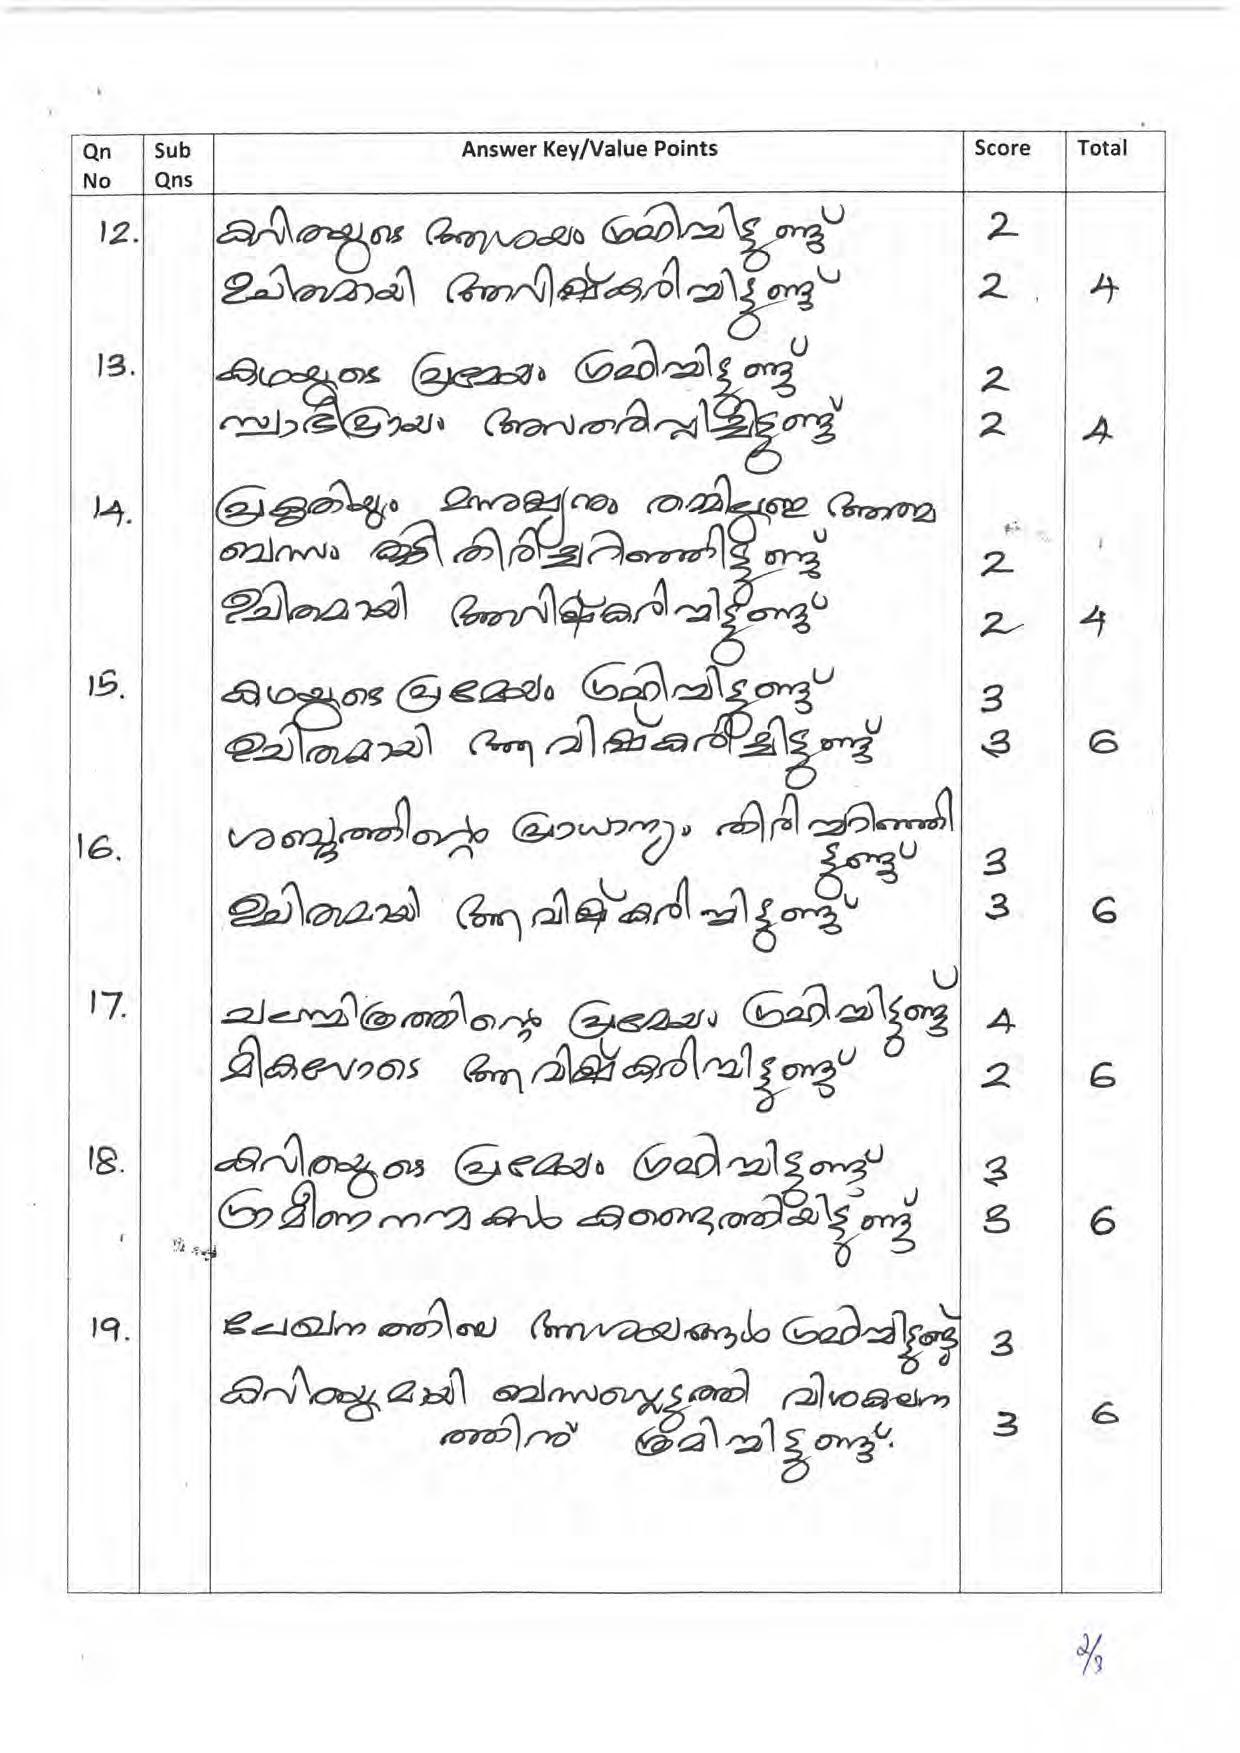 Qn No Sub Qns Answer Key/Value Points Score Total
12. കവിതയുടെ ആശയം ഗ്രഹിച്ചിട്ടുണ്ട് 2
ഉചിതമായി ആവിഷ്കരിച്ചിട്ടുണ്ട് 2 4
13. കഥയുടെ പ്രമേയം ഗ്രഹിച്ചിട്ടുണ്ട് 2
സ്വാഭിപ്രായം അവതരിപ്പിച്ചിട്ടുണ്ട് 2 4
14. പ്രകൃതിയും മനുഷ്യനും തമ്മിലുള്ള ആത്മ
ബന്ധം കൂടി തിരിച്ചറിഞ്ഞിട്ടുണ്ട് 2
ഉചിതമായി ആവിഷ്കരിച്ചിട്ടുണ്ട് 2 4
15. കഥയുടെ പ്രമേയം ഗ്രഹിച്ചിട്ടുണ്ട് 3
ഉചിതമായി ആവിഷ്കരിച്ചിട്ടുണ്ട് 3 6
16. ശബ്ദത്തിന്റെ പ്രാധാന്യം തിരിച്ചറിഞ്ഞി
ട്ടുണ്ട് 3
ഉചിതമായി ആവിഷ്കരിച്ചിട്ടുണ്ട് 3 6
17. ചലച്ചിത്രത്തിന്റെ പ്രമേയം ഗ്രഹിച്ചിട്ടുണ്ട് 4
മികവോടെ ആവിഷ്കരിച്ചിട്ടുണ്ട് 2 6
18. കവിതയുടെ പ്രമേയം ഗ്രഹിച്ചിട്ടുണ്ട് 3
ഗ്രാമീണനന്മകൾ കണ്ടെത്തിയിട്ടുണ്ട് 3 6
19. ലേഖനത്തിലെ ആശയങ്ങൾ ഗ്രഹിച്ചിട്ടുണ്ട് 3
കവിതയുമായി ബന്ധപ്പെടുത്തി വിശകലന
ത്തിന് ശ്രമിച്ചിട്ടുണ്ട്. 3 6
2/3